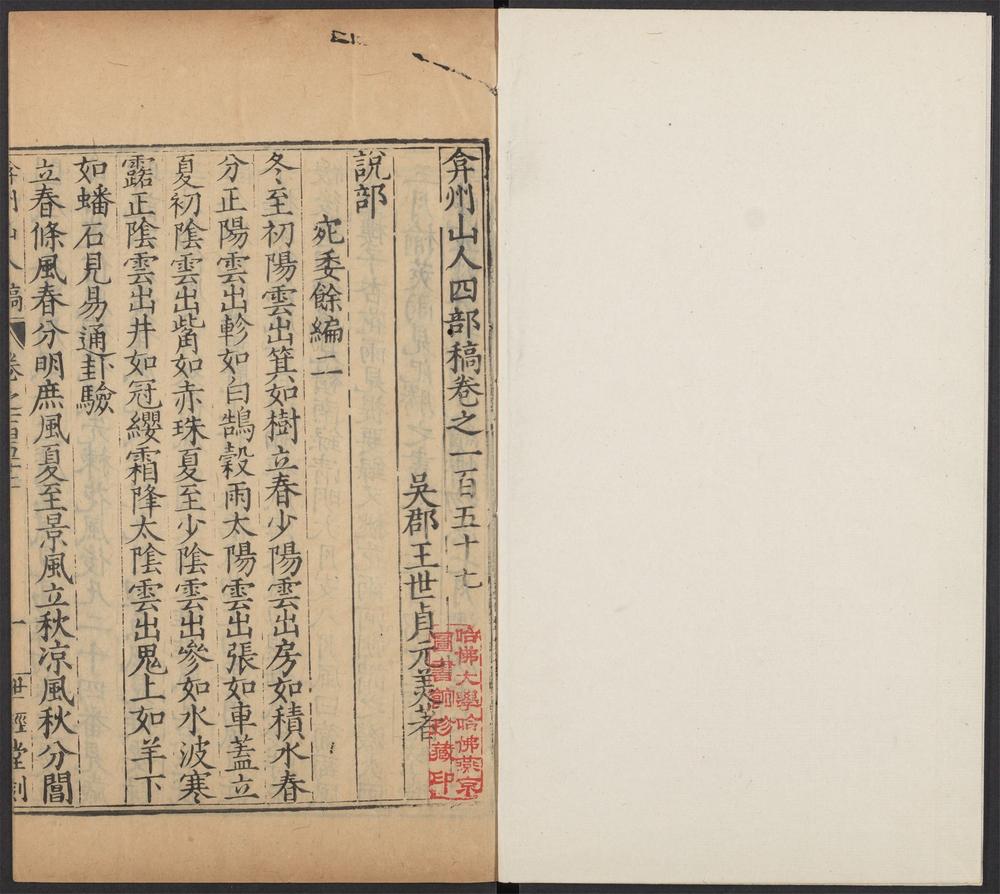 弇州山人四部稿卷之一百五十七
吳郡王世貞元美著
說部
宛委餘編二
冬至初陽雲出箕如樹立春少陽雲出房如積水春
分正陽雲出軫如白鵠穀雨太陽雲出張如車蓋立
夏初陰雲出觜如赤珠夏至少陰雲出參如水波寒
露正陰雲出井如冠纓霜降太陰雲出鬼上如羊下
如蟠石見易通卦驗
立春條風春分明庶風夏至景風立秋涼風秋分閶
弇州山人稿 卷之 一 世經堂刻
哈佛大學哈佛燕京
圖書館珍藏印